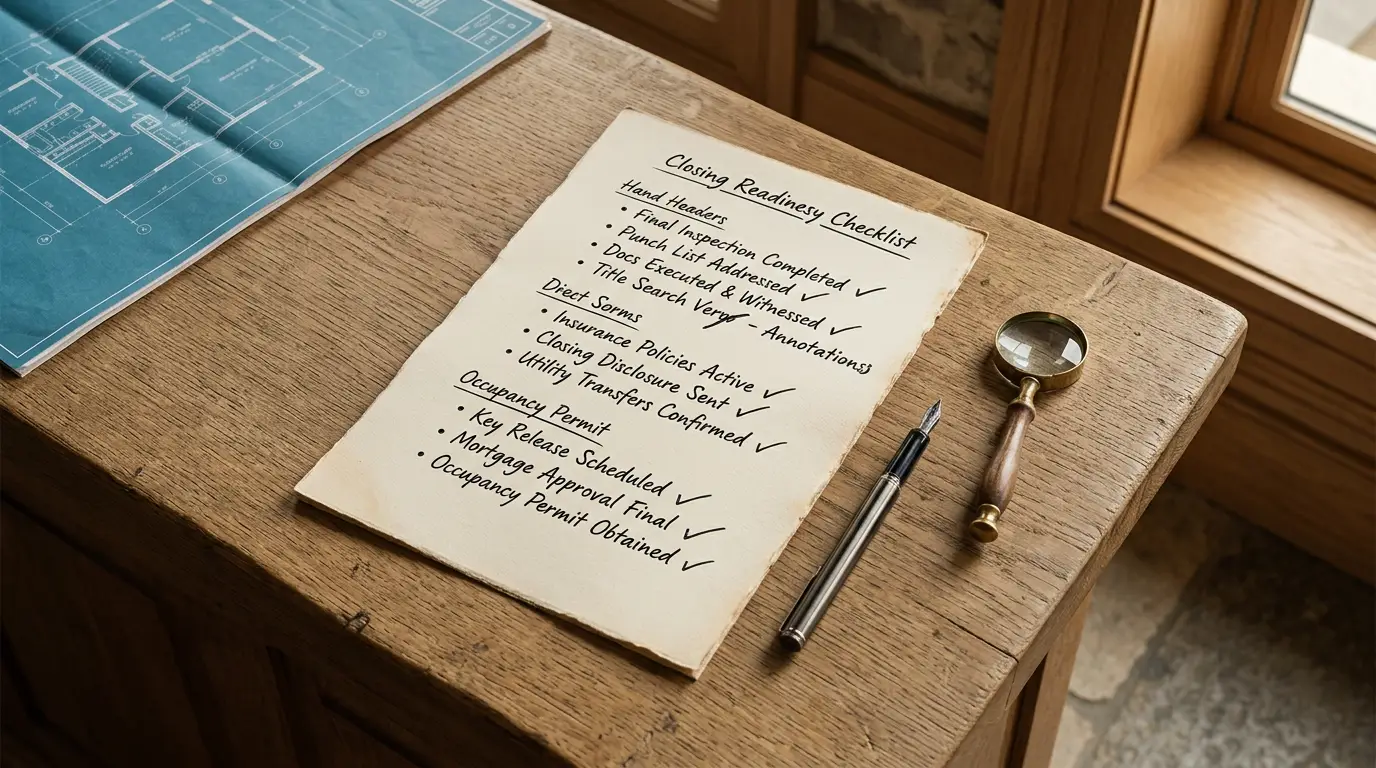 Closing Readinesy Checklist
Hand Headers
• Final Inspection Completed ✓
• Punch List Addressed ✓
• Docs Executed & Witnessed ✓
• Title Search - Annotations
Direct Sorms
• Insurance Policies Active ✓
• Closing Disclosure Sent ✓
• Utility Transfers Confirmed ✓
Occupancy Permit
• Key Release Scheduled ✓
• Mortgage Approval Final ✓
• Occupancy Permit Obtained ✓